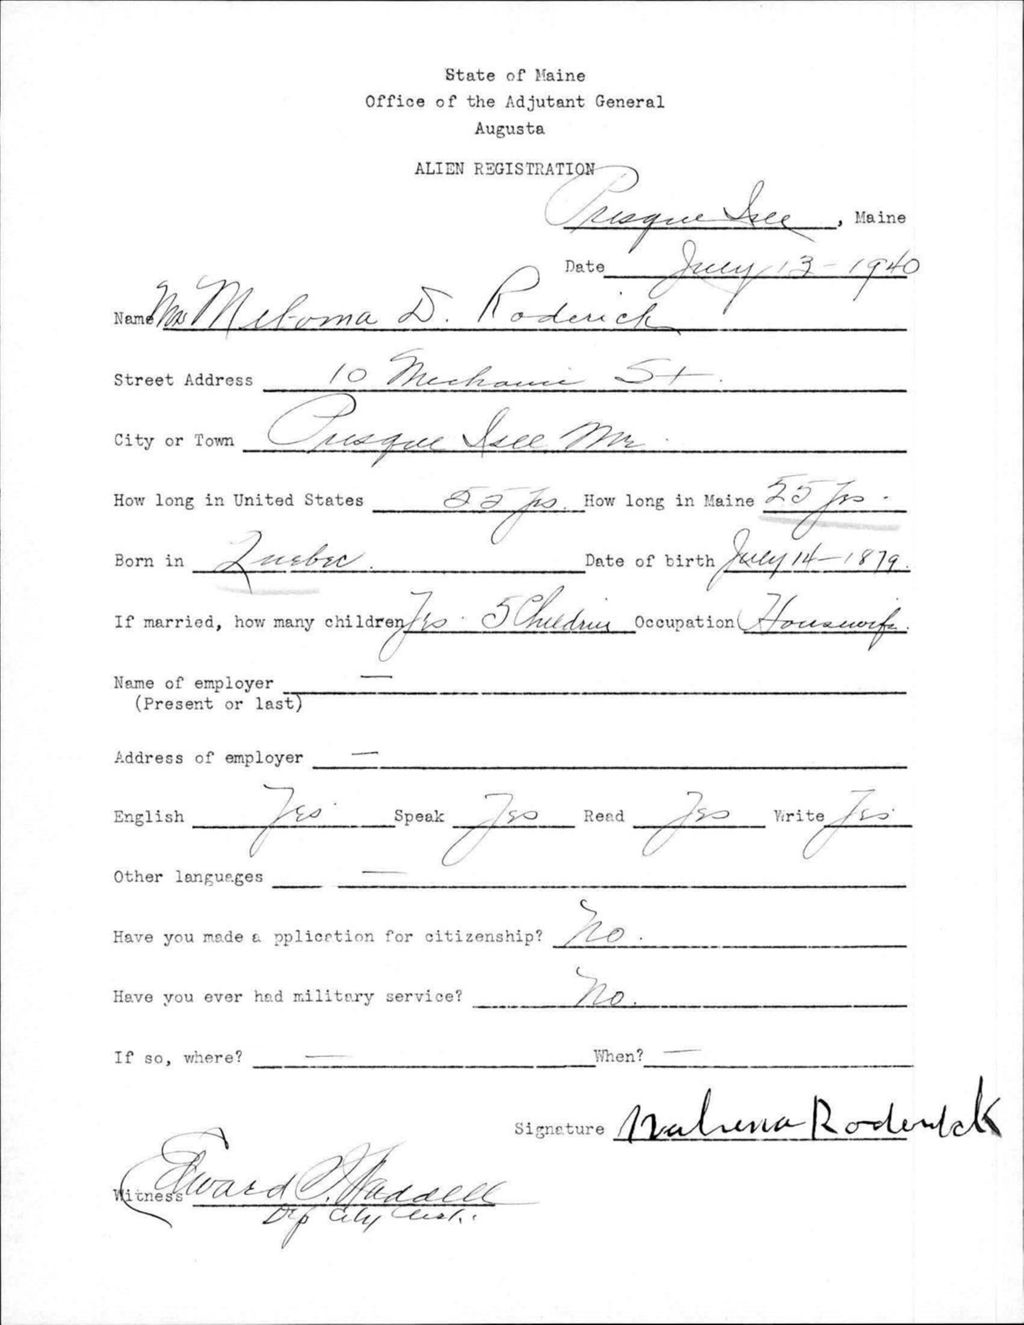 State of Maine
Office of the Adjutant General
Augusta
ALIEN REGISTRATION
Presque Isle, Maine
Date July 13 - 1940
Name Mrs D. Roderick
Street Address 10 Mechanic St.
City or Town Presque Isle Me.
How long in United States 55 yrs. How long in Maine 55 yrs.
Born in Quebec. Date of birth July 14 - 1879.
If married, how many children Yes. 5 Children Occupation Housewife.
Name of employer —
(Present or last)
Address of employer —
English Yes Speak Yes Read Yes Write Yes
Other languages —
Have you made a pplication for citizenship? No.
Have you ever had military service? No.
If so, where? — When? —
Signature Roderick
Witness Edward P. Waddell
Dep City Clerk.